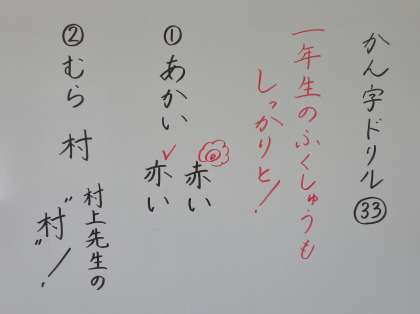 かん字ドリル㉝
一年生のふくしゅうも
しっかりと!
①あかい
赤い
亦い
②むら 村
村上先生の
"村"!